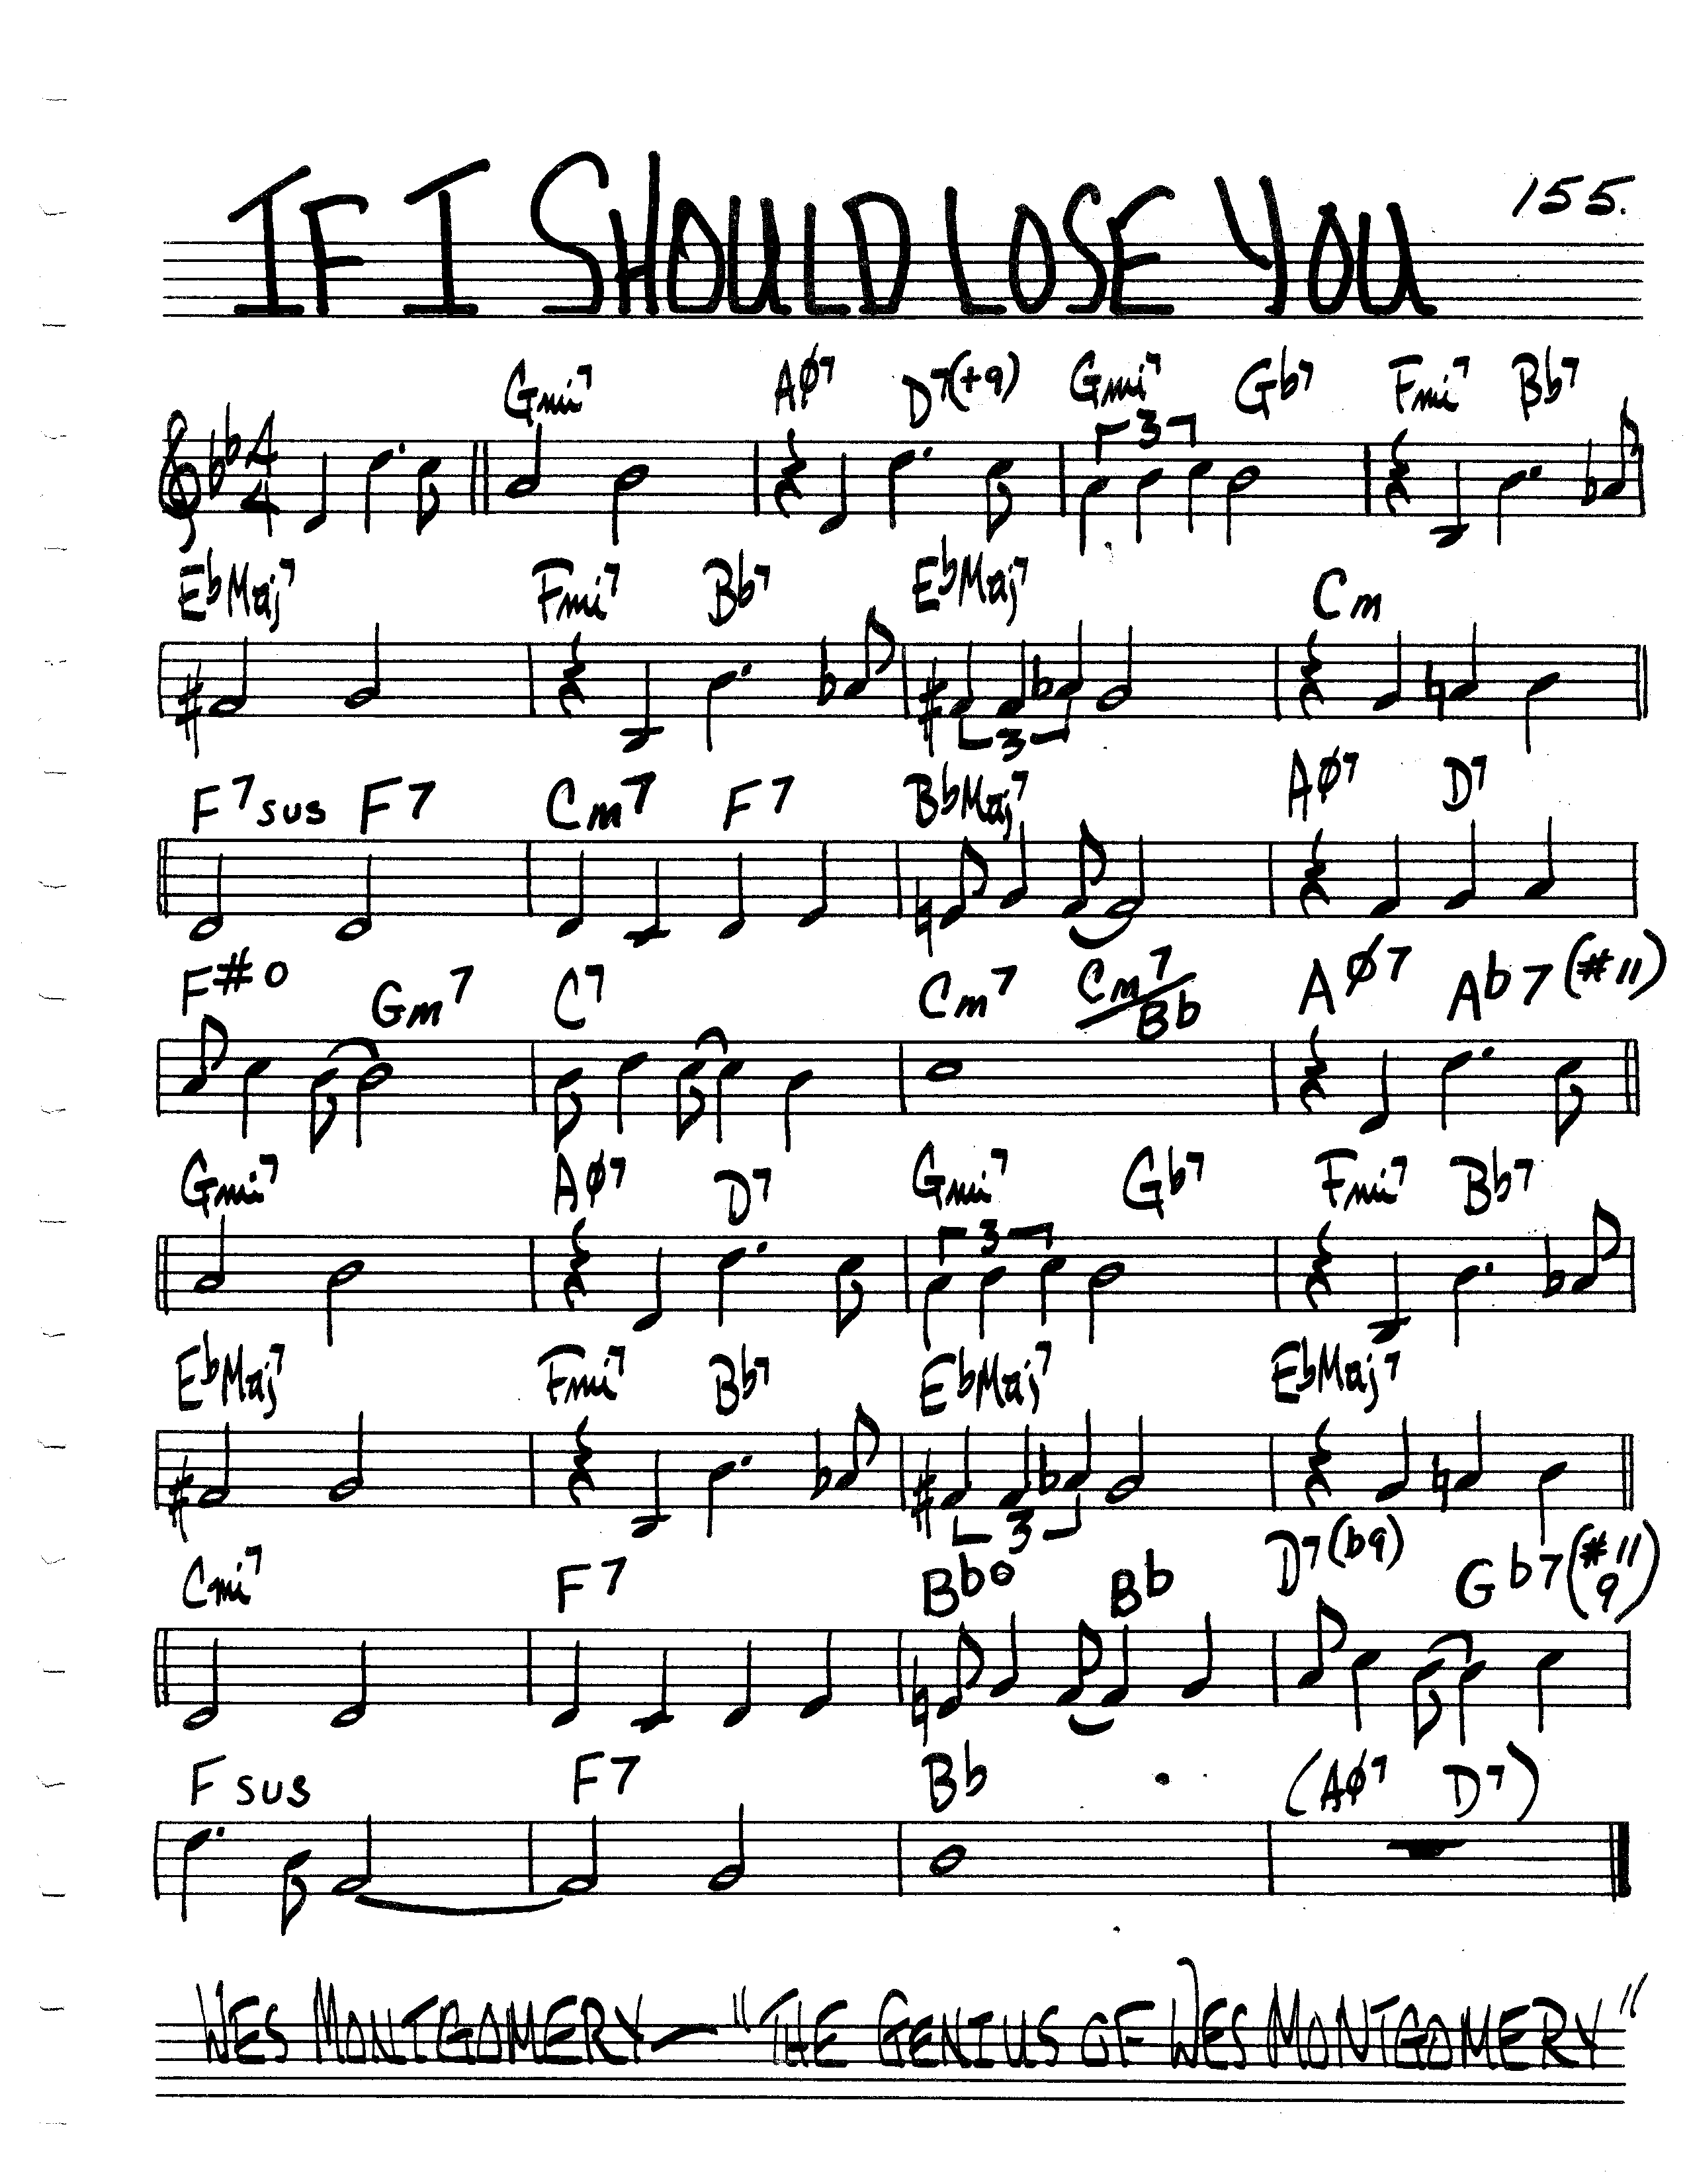 155.
IF I SHOULD LOSE YOU
Gmi7 AØ7 D7(+9) Gmi7 Gb7 Fmi7 Bb7
4
4
3
EbMaj7 Fmi7 Bb7 EbMaj7 Cm
3
F7sus F7 Cm7 F7 BbMaj7 AØ7 D7
F#o Gm7 C7 Cm7 Cm7/Bb AØ7 Ab7(#11)
Gmi7 AØ7 D7 Gmi7 Gb7 Fmi7 Bb7
3
EbMaj7 Fmi7 Bb7 EbMaj7 EbMaj7
3
Cmi7 F7 Bbo Bb D7(b9) Gb7(#11 9)
F sus F7 Bb (AØ7 D7)
WES MONTGOMERY — "THE GENIUS OF WES MONTGOMERY"